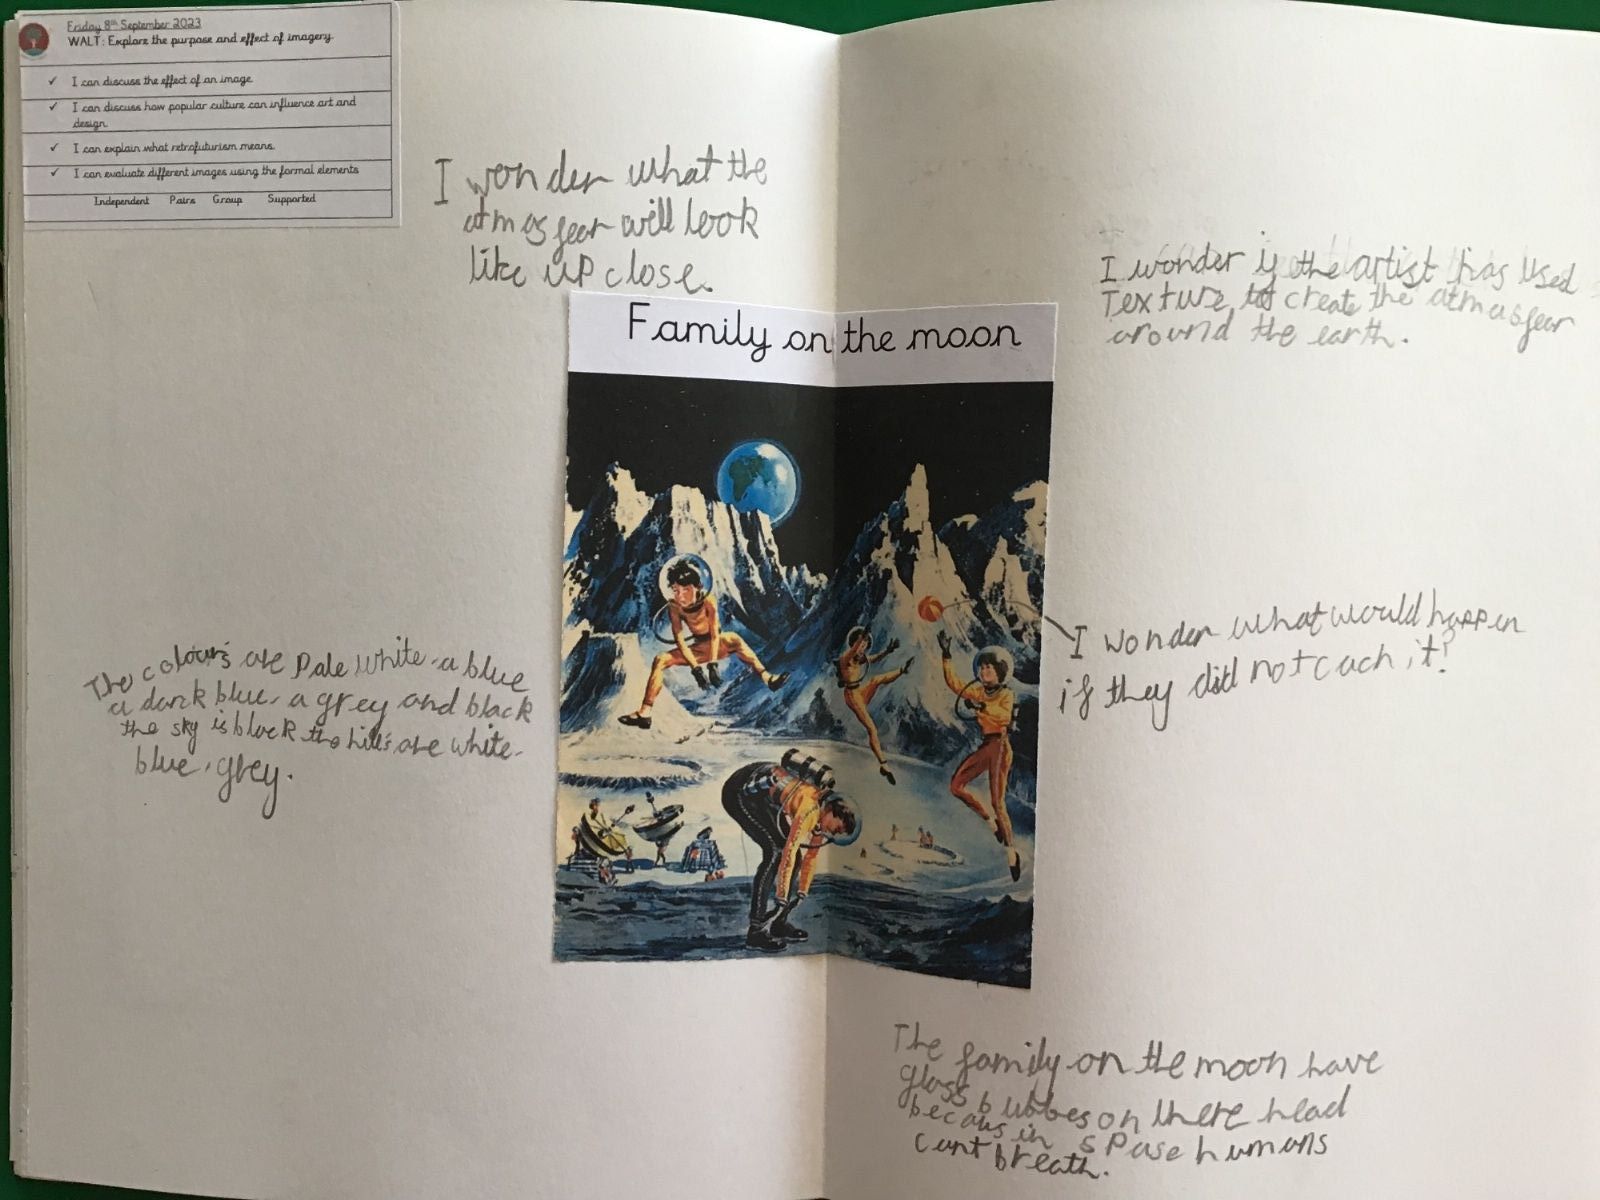 Friday 8th September 2023
WALT: Explore the purpose and effect of imagery
✓ I can discuss the effect of an image
✓ I can discuss how popular culture can influence art and
design.
✓ I can explain what retrofuturism means.
✓ I can evaluate different images using the formal elements
Independent Pairs Group Supported
I wonder what the
atmosfear will look
like up close.
I wonder if the artist has used
Texture to create the atmosfear
around the earth.
Family on the moon
The colours are Pale white a blue
a dark blue, a grey and black
the sky is black the hills are white
blue, grey.
I wonder what would happen
if they did not cach it?
The family on the moon have
glass bubbes on there head
becaus in spase humans
cant breath.